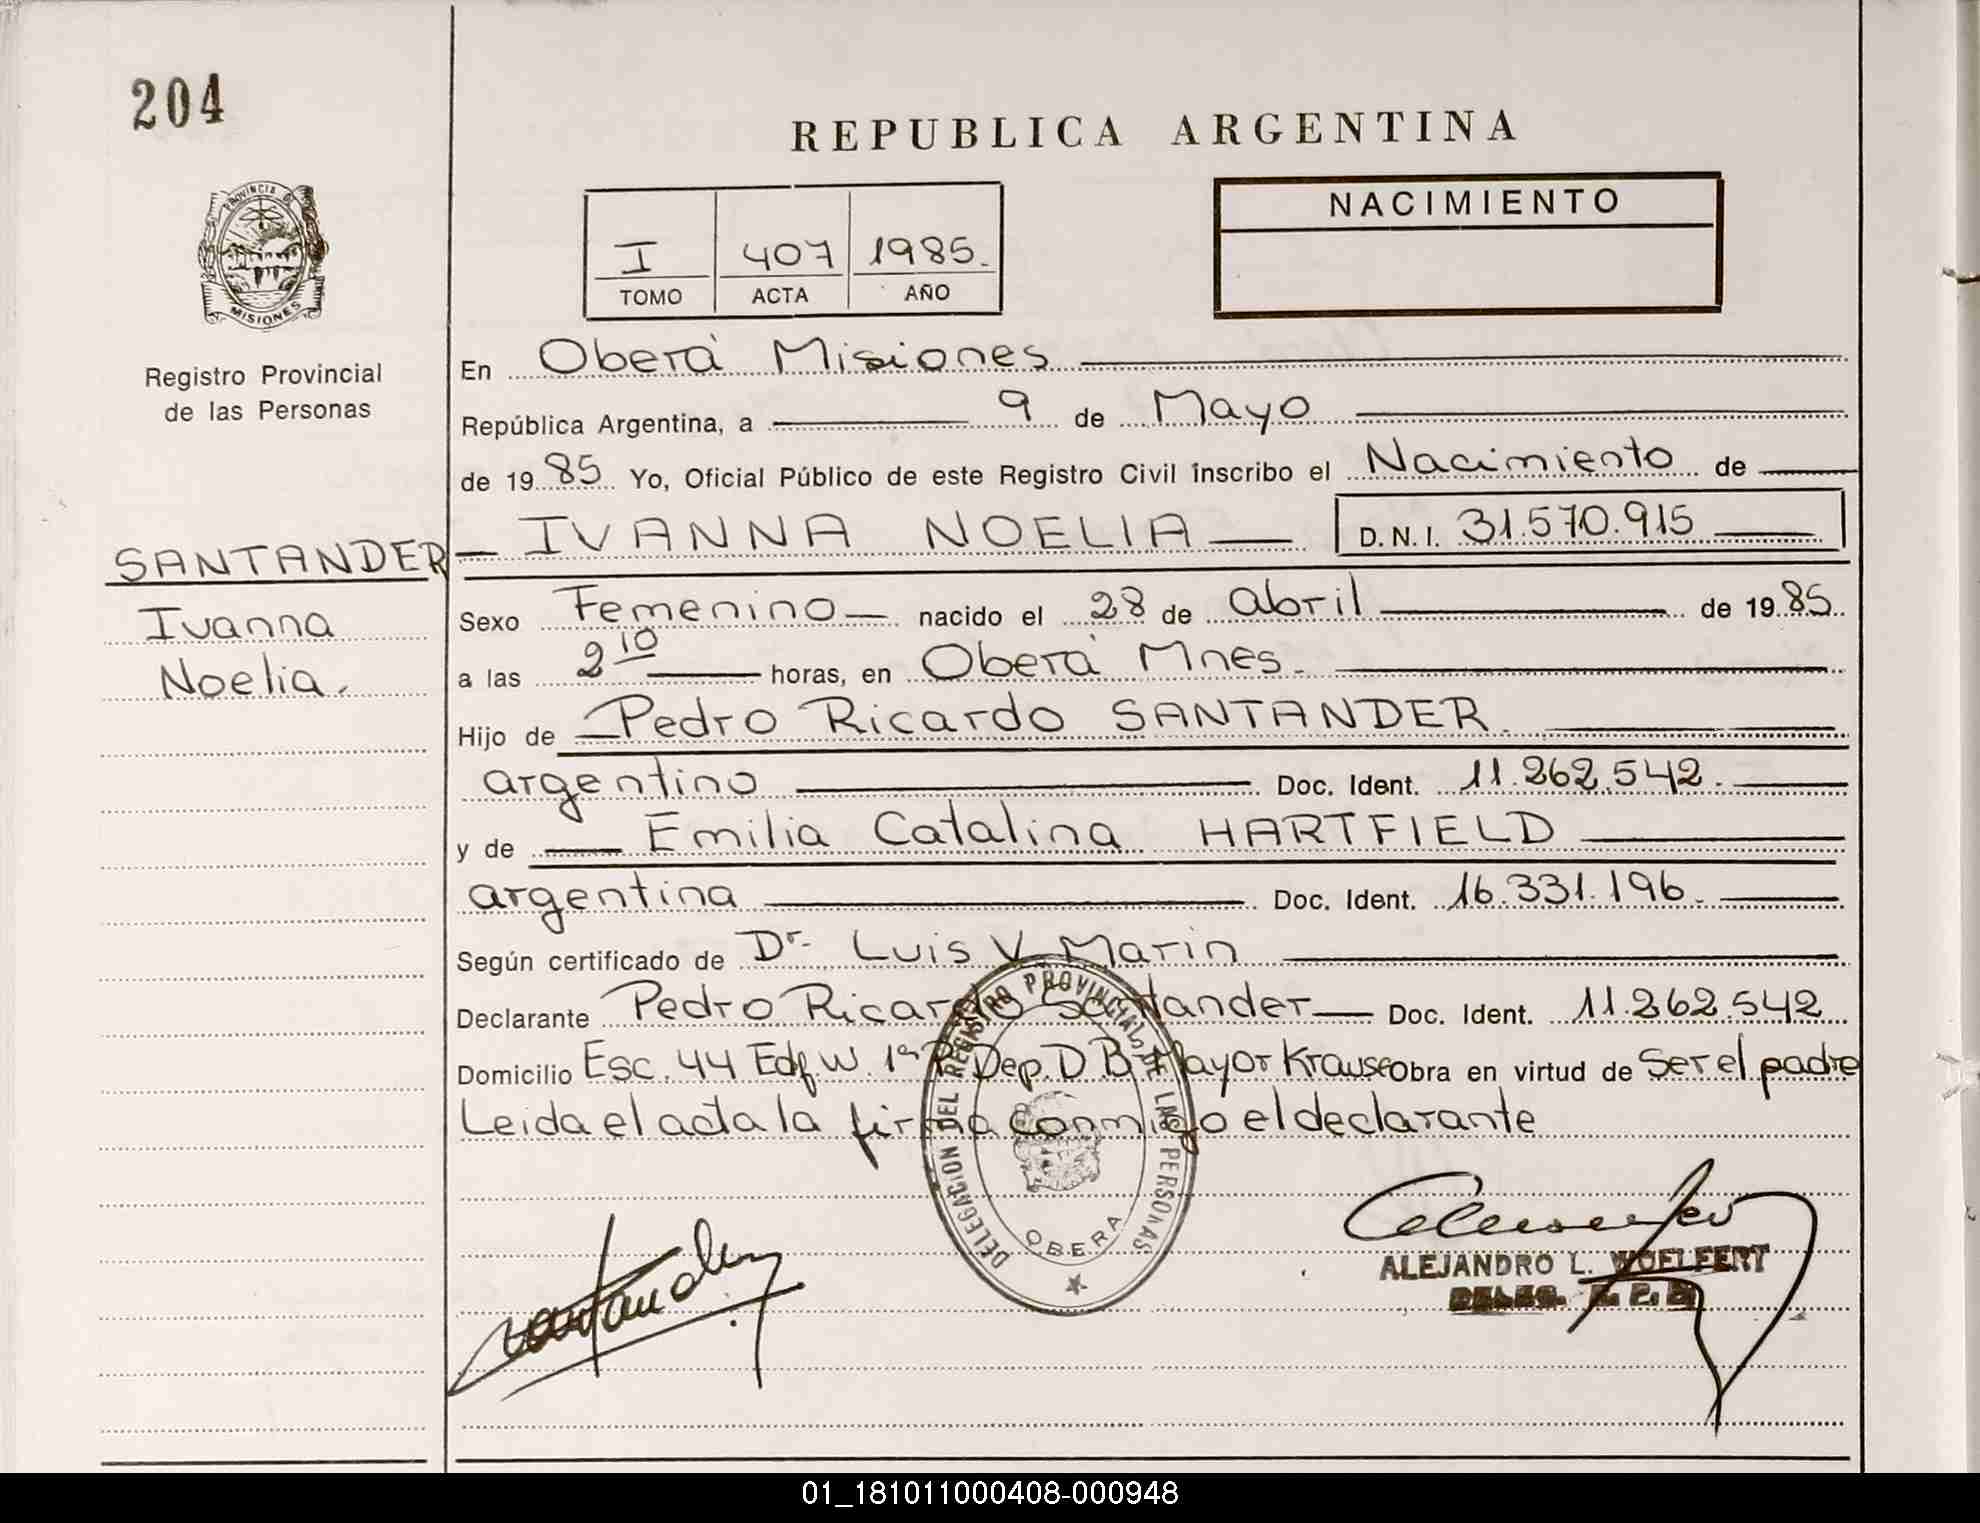 204
REPUBLICA ARGENTINA
PROVINCIA DE
MISIONES
Registro Provincial
de las Personas
I 407 1985.
TOMO ACTA AÑO
NACIMIENTO
En Oberá Misiones
República Argentina, a 9 de Mayo
de 1985 Yo, Oficial Público de este Registro Civil inscribo el Nacimiento de
SANTANDER
Ivanna
Noelia.
IVANNA NOELIA D.N.I. 31.570.915
Sexo Femenino nacido el 28 de abril de 1985.
a las 2 10 horas, en Oberá Mnes.
Hijo de Pedro Ricardo SANTANDER.
argentino Doc. Ident. 11.262.542.
y de Emilia Catalina HARTFIELD
argentina Doc. Ident. 16.331.196.
Según certificado de Dr. Luis V. Marin
Declarante Pedro Ricardo Santander Doc. Ident. 11.262.542
Domicilio Esc. 44 Edf W. 1º P. Dep. D Bº Mayor Krause Obra en virtud de Ser el padre
Leida el acta la firma conmigo el declarante
DELEGACION DEL REGISTRO PROVINCIAL DE LAS PERSONAS
OBERA
Santander
ALEJANDRO L. WOELFERT
01_181011000408-000948